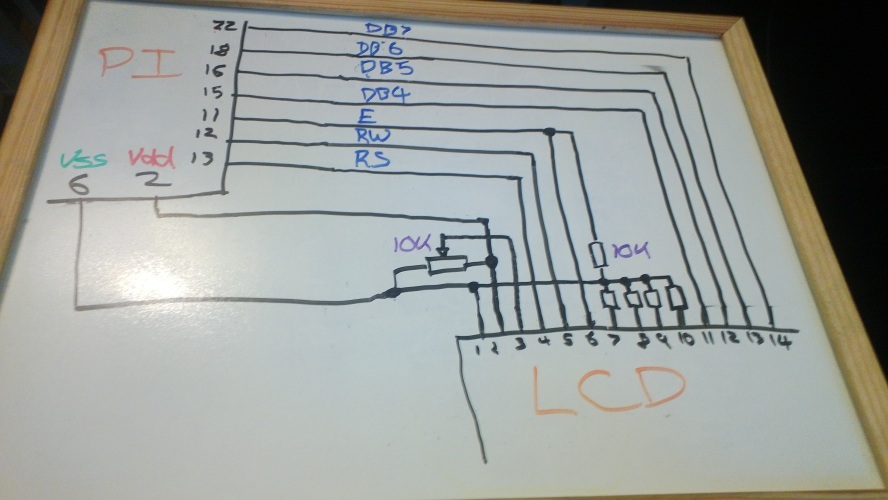 22 DB7
18 DB6
PI 16 DB5
15 DB4
11 E
12 RW
13 RS
Vss Vdd
6 2
10K 10K
1 2 3 4 5 6 7 8 9 10 11 12 13 14
LCD